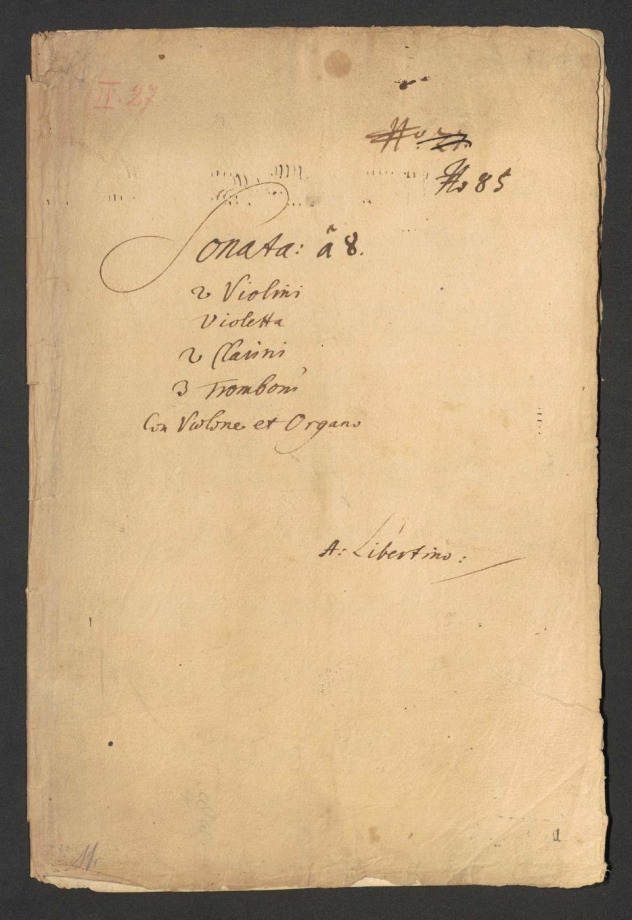 II. 27
No 85
Sonata: â 8.
2 Violini
Violetta
2 Clarini
3 Tromboni
Con Violone et Organo
A: Libertino:
11.
1